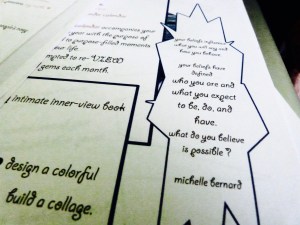 accompanies your
year with the purpose of
purpose-filled moments
our life.
re-VIEW
gems each month.
intimate inner-view book
design a colorful
build a collage.
your beliefs influence
what you will say and
how you behave.
your beliefs have
defined
who you are and
what you expect
to be, do, and
have.
what do you believe
is possible?
michelle bernard